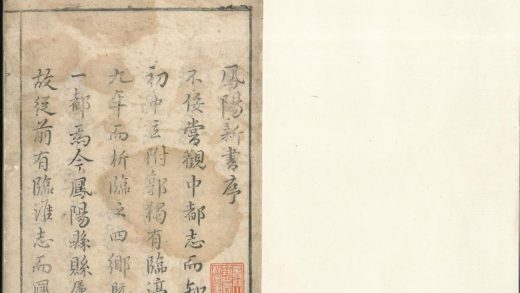 鳳陽新書序
不佞嘗觀中都志而知
初沖立附郭獨有臨
九年而析臨之四鄉
一都為今鳳陽縣縣
故從前有臨淮志而鳳